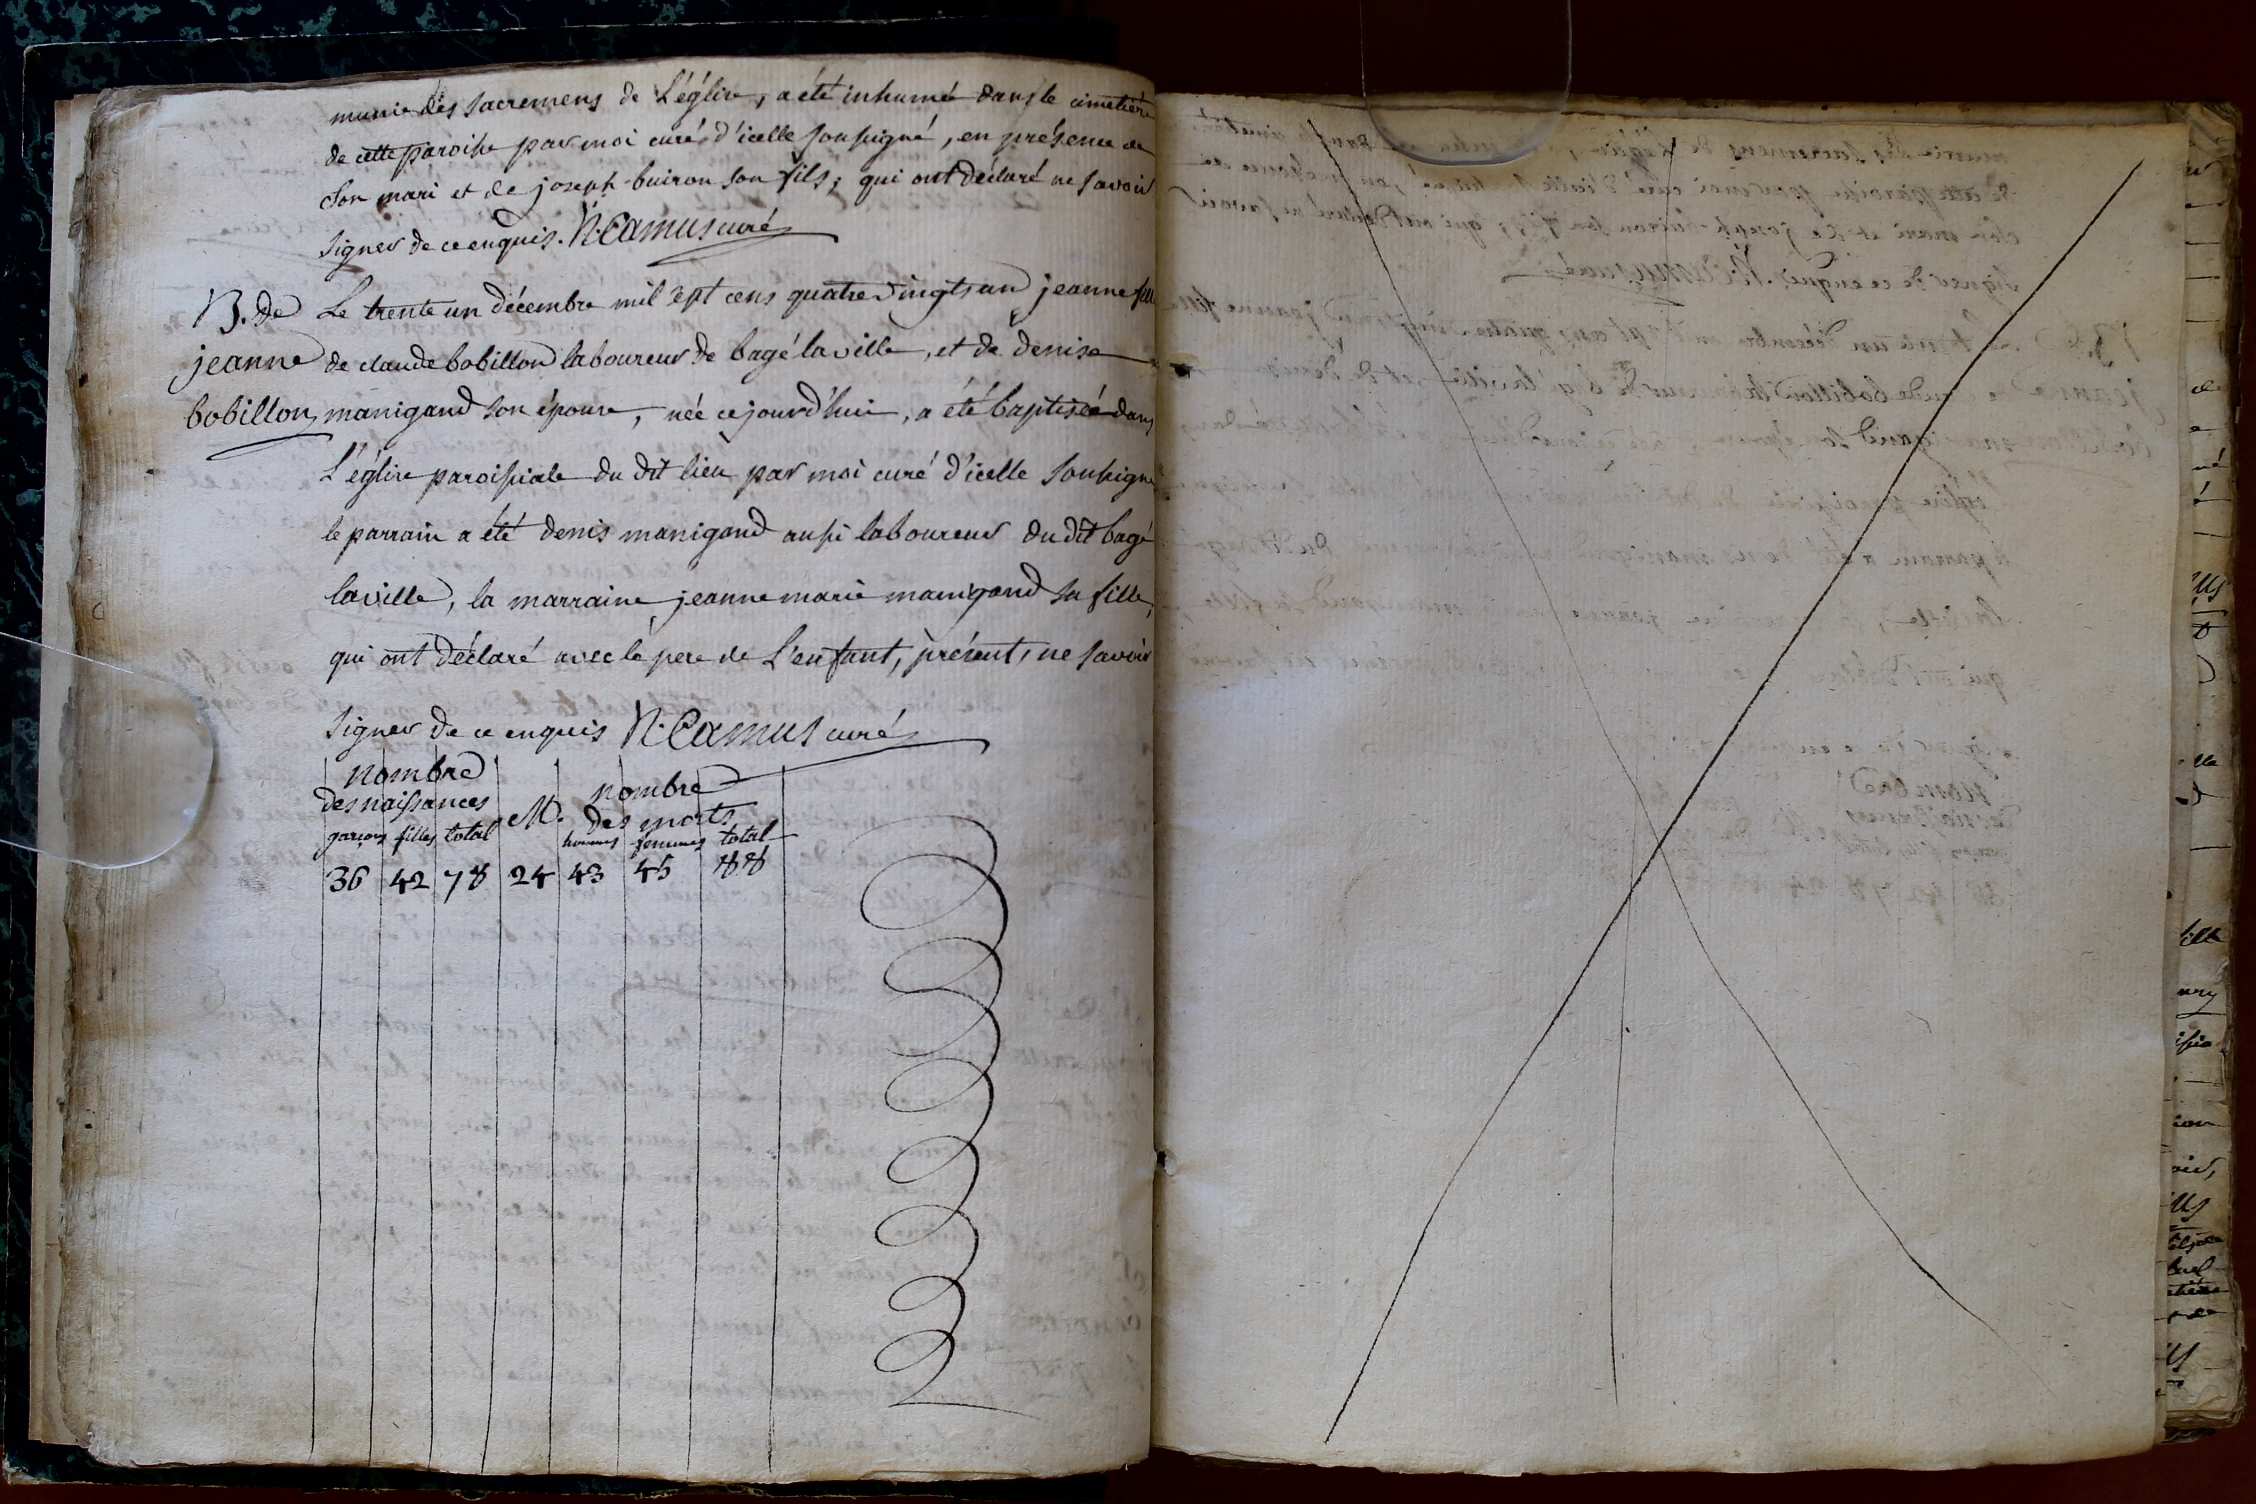 munie des sacremens de L'église, a été inhumé dans le cimetiere
de cette paroisse par moi curé d'icelle soussigné, en présence de
son mari et de joseph buiron son fils; qui ont déclaré ne savoir
signer de ce enquis. N. Camus curé
B. de
jeanne
bobillon
Le trente un décembre mil sept cens quatre vingts un jeanne fille
de claude bobillon laboureur de bagé la ville, et de denise
manigand son épouse, née cejourd'hui, a été baptisée dans
L'église paroissiale du dit lieu par moi curé d'icelle soussigné
le parrain a été denis manigand aussi laboureur du dit bagé
la ville, la marraine jeanne marie manigand sa fille,
qui ont déclaré avec le pere de L'enfant, présent, ne savoir
signer de ce enquis N. Camus curé
nombre
des naissances
garçons filles total
M.
nombre
des morts
hommes femmes total
36 42 78 24 43 45 88